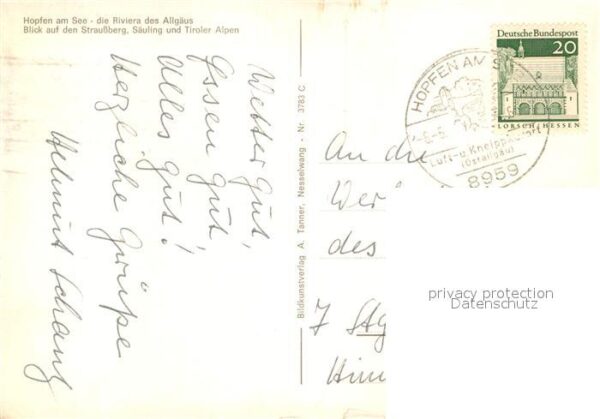 Hopfen am See - die Riviera des Allgäus
Blick auf den Straußberg, Säuling und Tiroler Alpen
Wetter gut,
Essen gut
Alles gut!
Herzliche Grüße
Helmut Schanz
Bildkunstverlag A. Tanner, Nesselwang - Nr. 3783 C
Deutsche Bundespost
20
LORSCH/HESSEN
HOPFEN AM S
Luft- u Kneippkurort
(Ostallgäu)
8959
An die
Wer
des
7 Stg
Him
privacy protection
Datenschutz